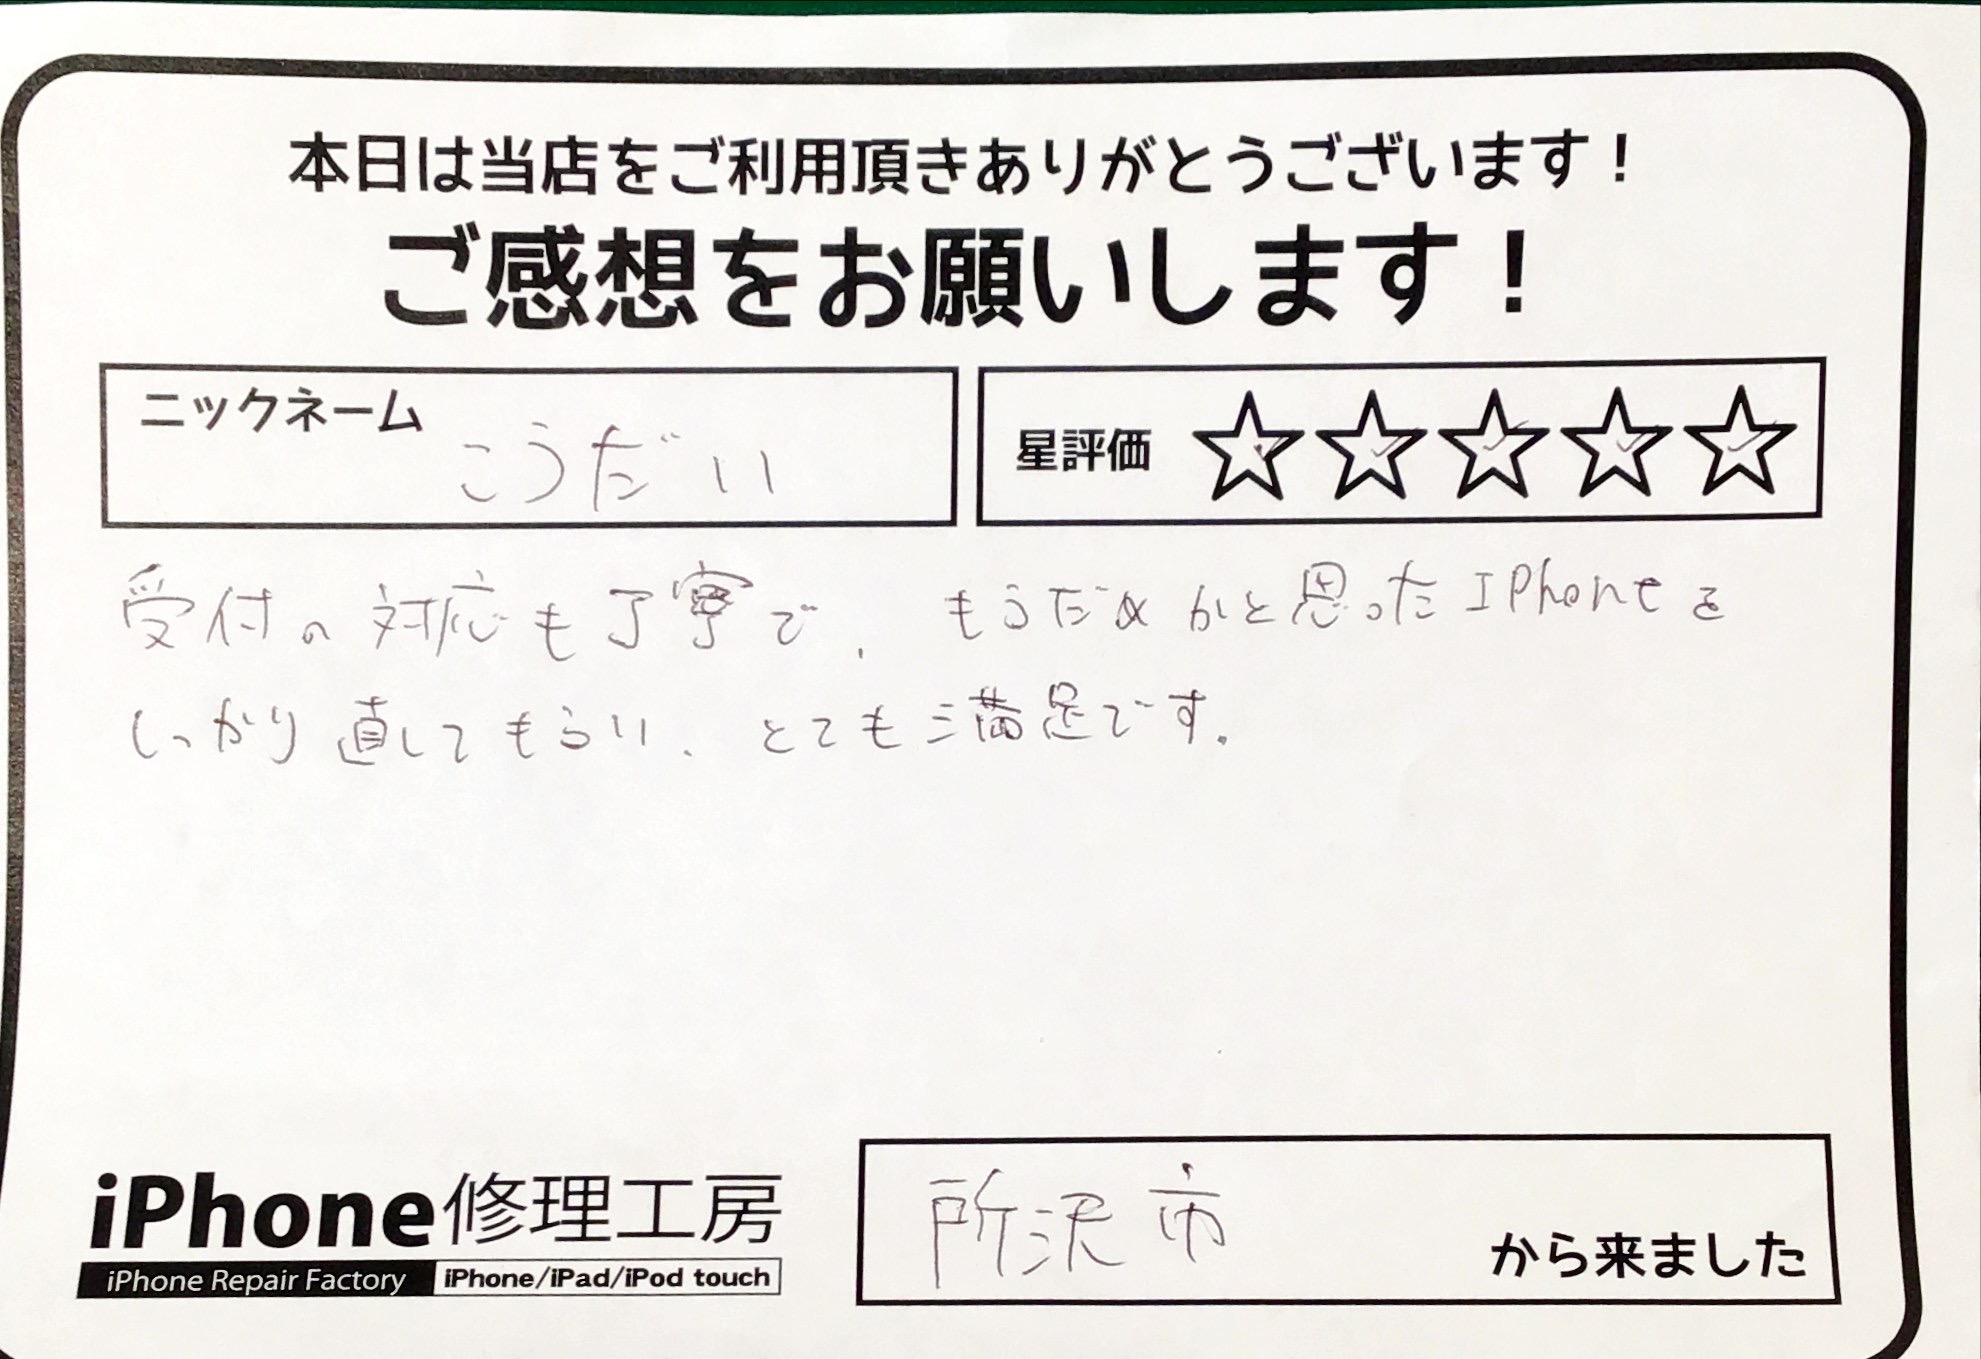 本日は当店をご利用頂きありがとうございます！
ご感想をお願いします！
ニックネーム こうだい
星評価 ☆☆☆☆☆
受付の対応も丁寧で、もうだめかと思ったIPhoneを
しっかり直してもらい、とても満足です。
iPhone修理工房
iPhone Repair Factory iPhone/iPad/iPod touch
所沢市 から来ました